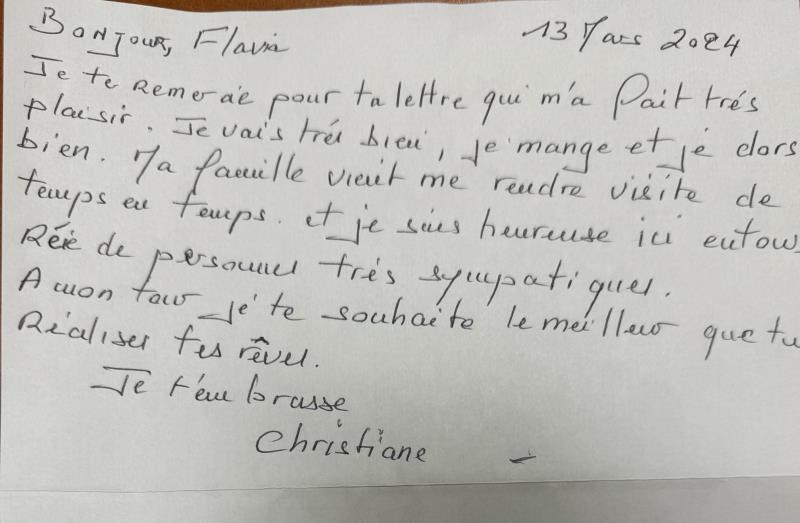 Bonjour, Flavia 13 Mars 2024
Je te Remercie pour ta lettre qui m'a fait trés
plaisir. Je vais trés bien, je mange et je dors
bien. Ma famille vient me rendre visite de
temps en temps. et je suis heureuse ici entou
Rée de personnes trés sympatiques.
A mon tour je te souhaite le meilleur que tu
Réalises tes rêves.
Je t'embrasse
Christiane